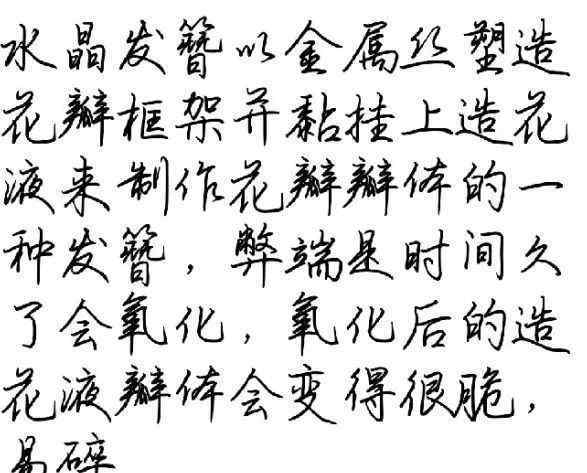 水晶发簪以金属丝塑造
花瓣框架并黏挂上造花
液来制作花瓣瓣体的一
种发簪，弊端是时间久
了会氧化，氧化后的造
花液瓣体会变得很脆，
易碎